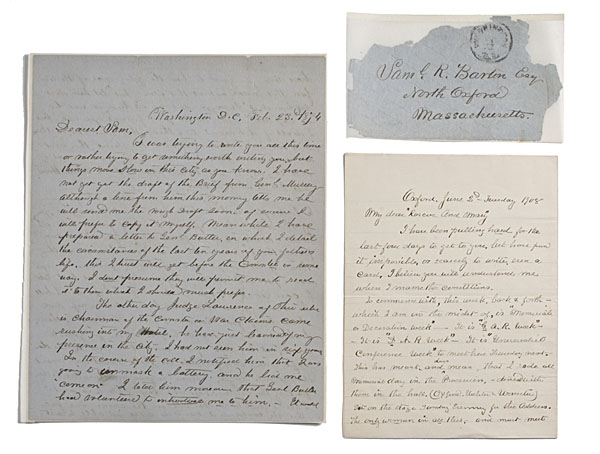 Washington D.C. Feb. 23. 1874
Dearest Sam,
I was trying to write you all this time
or rather trying to get something worth writing you, but
things move slow in this city, as you know. I have
not yet got the draft of the Brief from Genl. Mussey
although a line from him this morning tells me he
will send me the rough draft soon. of course I
will prefer to copy it myself. Meanwhile I have
prepared a letter to Genl Butler, in which I detail
the circumstances of the last ten years of your fathers
life, this I trust will get before the Committee in some
way. I dont presume they will permit me to read
it to them which I should much prefer.
The other day Judge Lawrence of Ohio who
is Chairman of the Committee on War Claims came
rushing into my
presence in the City. I had not seen him in six years
In the course of the call I notified him that I was
going to unmask a battery and he bid me
"come on" I told him moreover that Genl Butler
had volunteered to introduce me to him. -
WASHINGTON
Saml. R. Barton Esq
North Oxford
Massachusetts.
Oxford, June 2d Tuesday 1908
My dear and May
I have been putting hard for the
last few days to get to you, but have found
it impossible, or scarcely to write, even a
card, I believe you will understand me
when I name the conditions.
To commence with, this week, back & forth -
which I am in the midst of, is Memorial
or Decoration week - It is G. A. R. week -
It is A. R. week - It is Ancestral
Conference week
This has meant, and means, that I rode all
Memorial day in the Procession, dined with
them in the hall, (Oxford, Webster & Worcester)
on the stage Sunday evening for the Address.
The only woman in all this, - and must meet